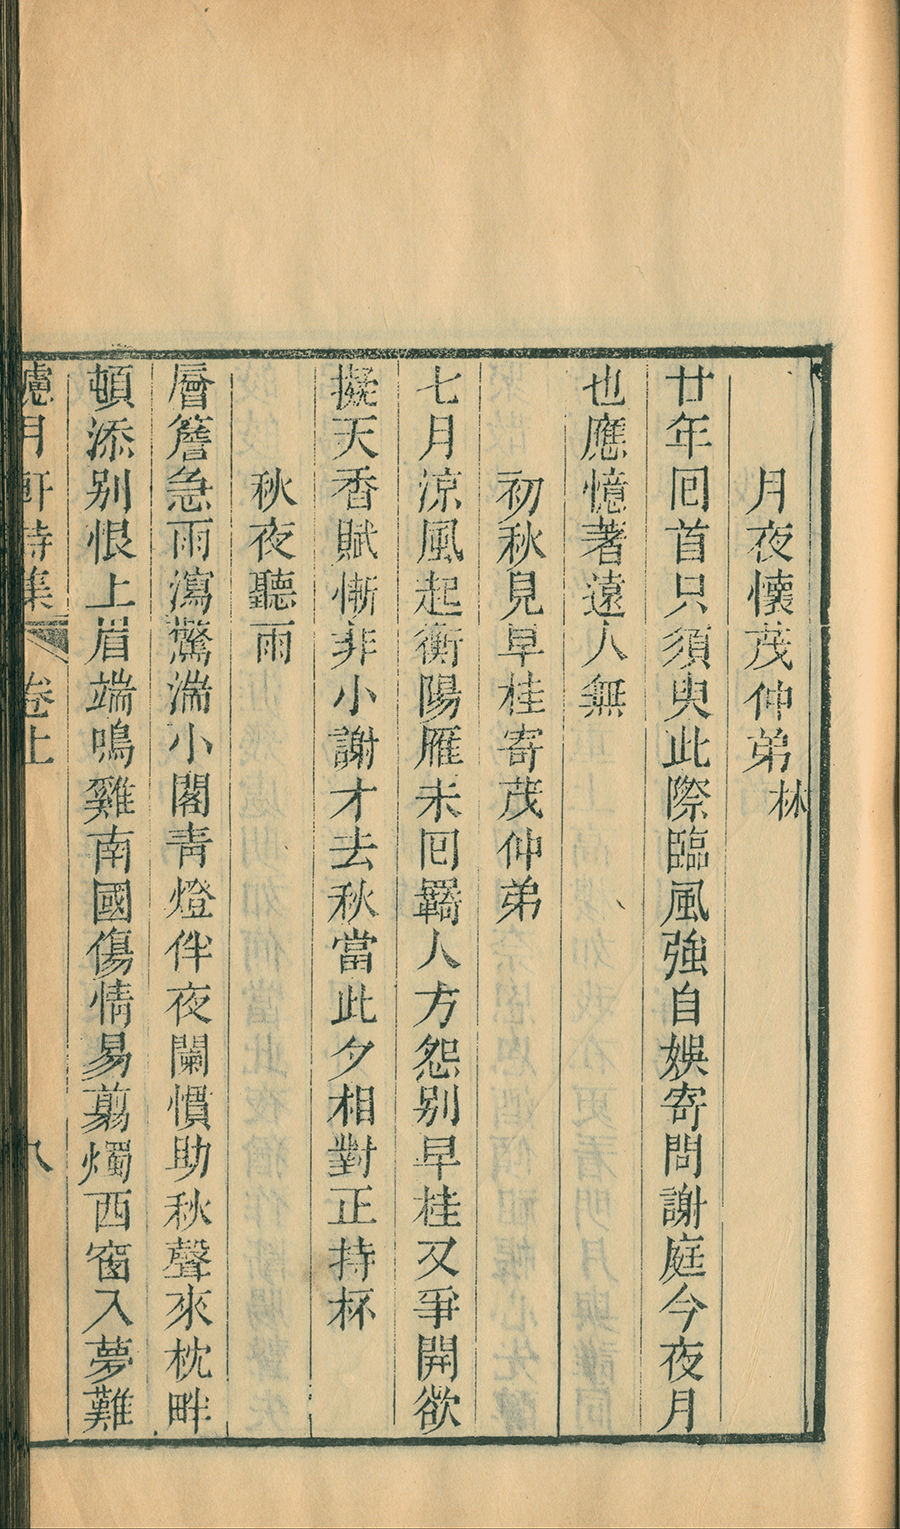 月夜懷茂仲弟林
廿年回首只須臾此際臨風強自娛寄問謝庭今夜月
也應憶著遠人無
初秋見早桂寄茂仲弟
七月涼風起衡陽雁未回羇人方怨別早桂又爭開欲
擬天香賦慚非小謝才去秋當此夕相對正持杯
秋夜聽雨
層簷急雨瀉驚湍小閣青燈伴夜闌慣助秋聲來枕畔
頓添別恨上眉端鳴雞南國傷情易翦燭西窗入夢難
月軒詩集 卷上 八